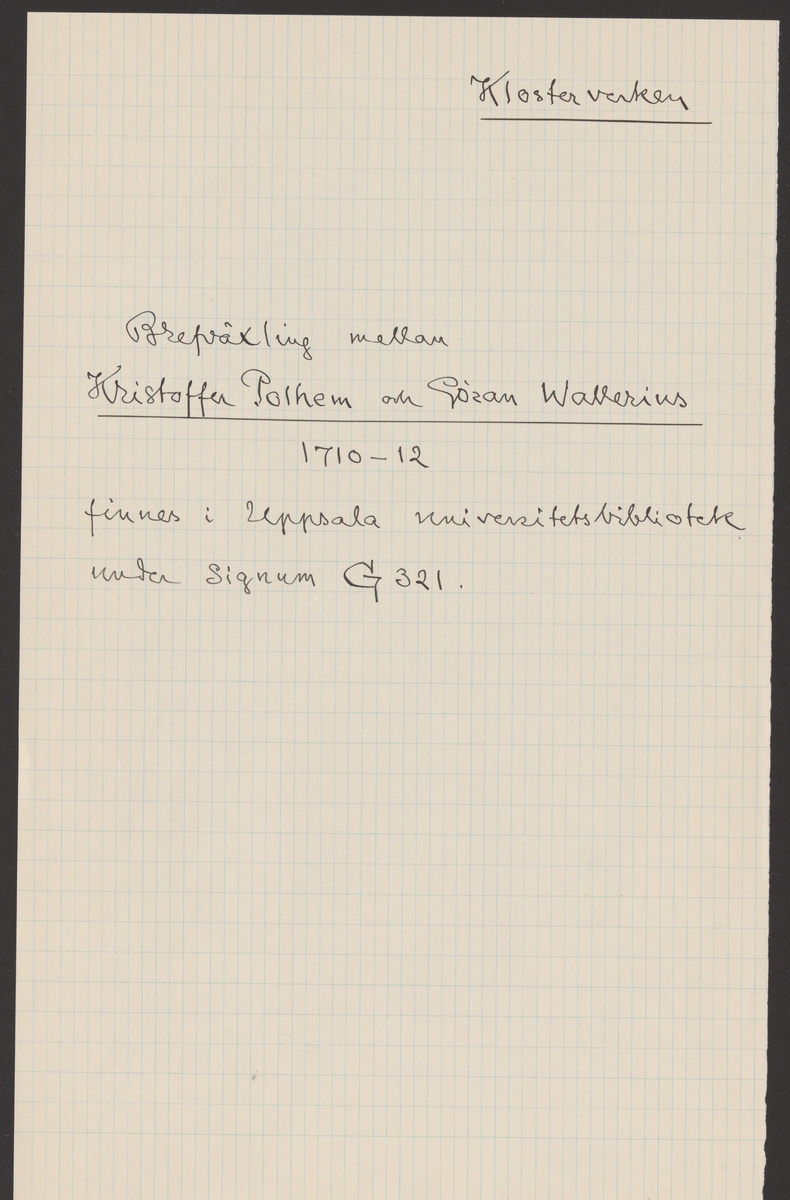 Klosterverken
Brefväxling mellan
Kristoffer Polhem och Göran Wallerius
1710-12
finnes i Uppsala universitetsbibliotek
under Signum G 321.